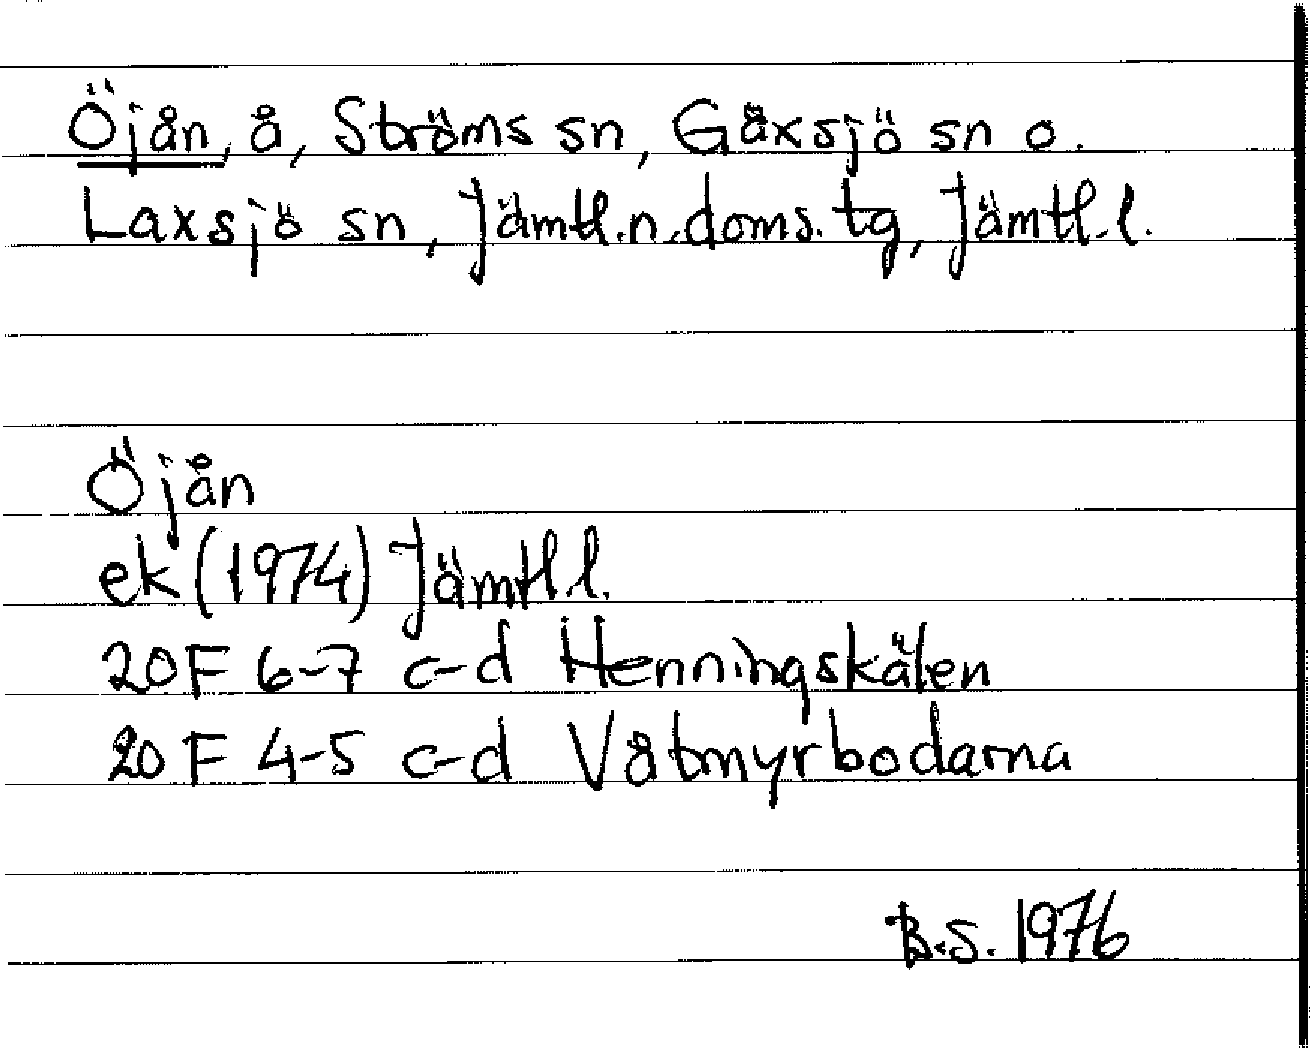 Öjån, å, Ströms sn, Gåxsjö sn o.
Laxsjö sn, Jämtl.n.doms.tg, Jämtl.l.
Öjån
ek (1974) Jämtl l.
20F 6-7 c-d Henningskälen
20F 4-5 c-d Våtmyrbodarna
B.S. 1976